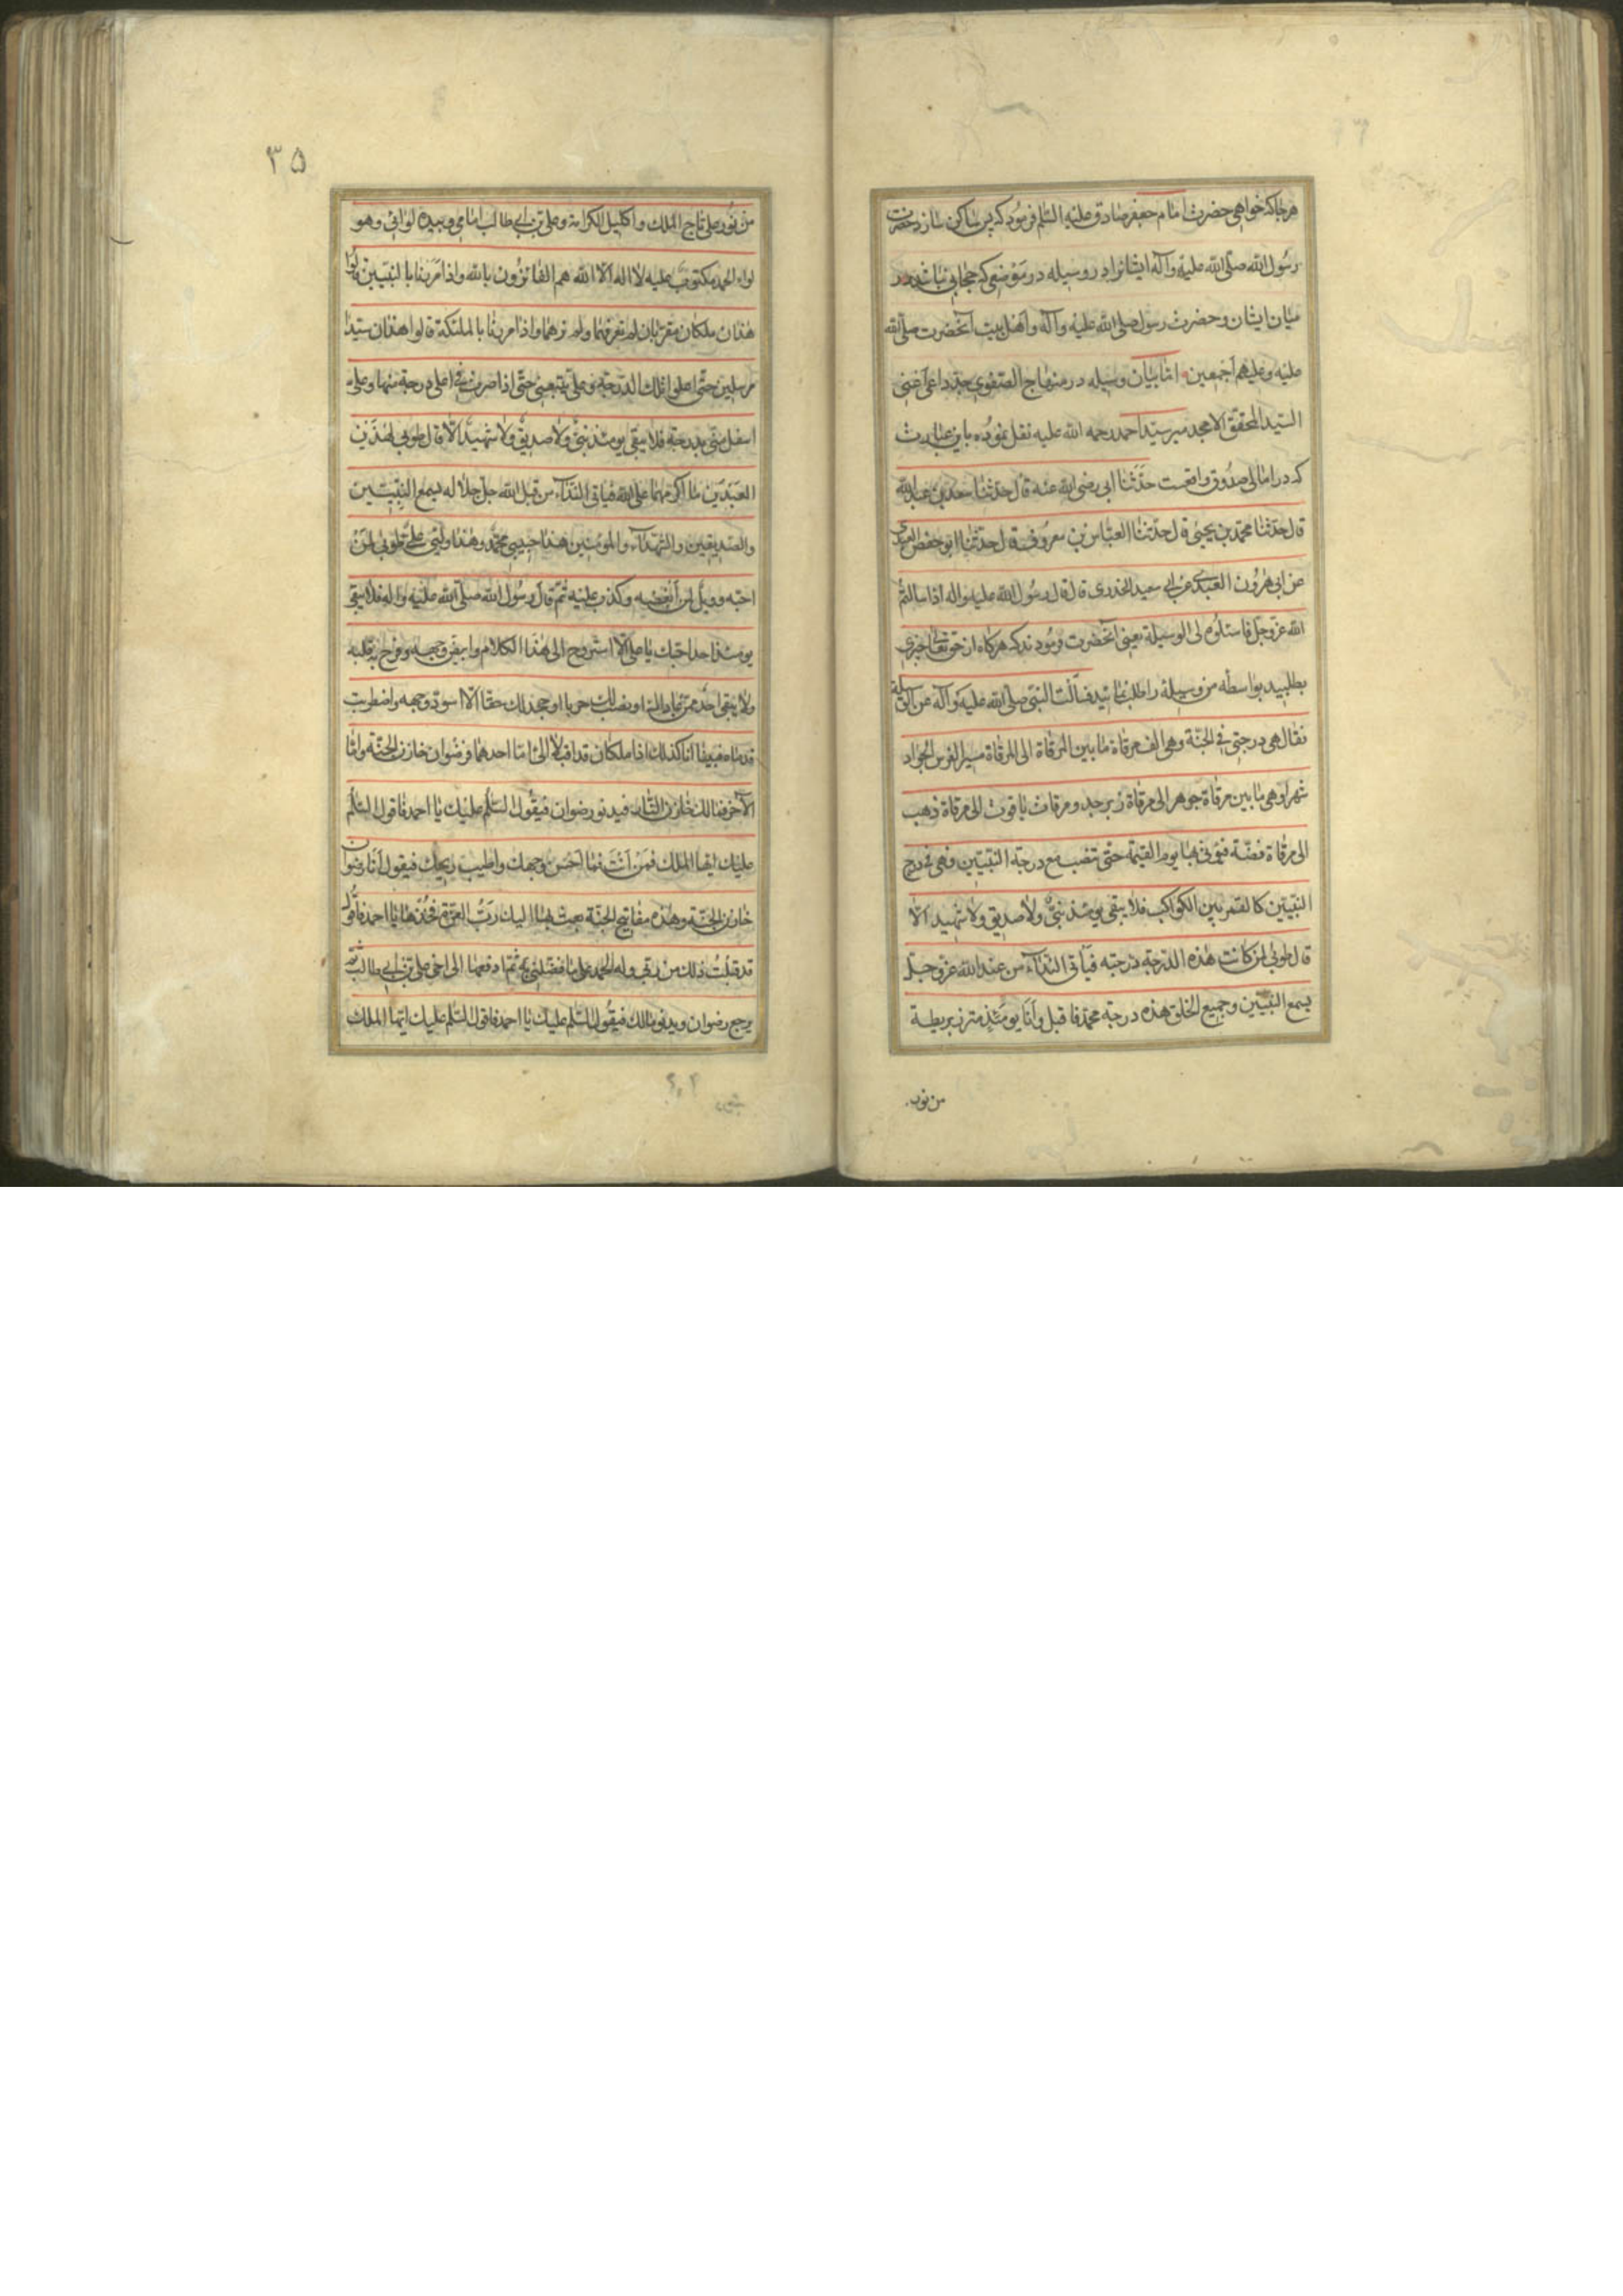 هرجا که خواهی حضرت امام جعفر صادق علیه السّلم فرمود که پس ساکن سازد حضرت
رسول الله صلّی الله علیه وآله ایشانرا در وسیله در موضعی که حجابی نباشد در
میان ایشان و حضرت رسول صلی الله علیه وآله واهل بیت آنحضرت صلّی الله
علیه وعلیهم اجمعین امّا بیان وسیله در منهاج الصّفوی جدّ داعی اعنی
السّید المحقّق الامجد میر سیّد احمد رحمه الله علیه نقل نموده باین عبارت
که در امالی صدوق واقعست حدّثنا ابی رضی الله عنه قال حدّثنا سعد بن عبد الله
قال حدّثنا محمّد بن یحیی قال حدّثنا العبّاس بن معروف قال حدّثنا ابو حفص العبدی
عن ابی هرون العبدی عن ابی سعید الخدری قال قال رسول الله علیه واله اذا سالتم
الله عزّوجلّ فاسئلوه لی الوسیلة یعنی آنحضرت فرمودند که هرکاه از حق تعالی چیزی
بطلبید بواسطه من وسیلة را طلب نمائید فسالت النبّی صلی الله علیه وآله عن الوسیلة
فقال هی درجتی فی الجنّة وهی الف مرقاة ما بین المرقاة الی المرقاة مسیر الفرس الجواد
شهرا وهی ما بین مرقاة جوهر الی مرقاة زبرجد ومرقات یاقوت الی مرقاة ذهب
الی مرقاة فضّة فیؤتی بها یوم القیمة حتّی تنصب مع درجة النّبیّین فهی فی درج
النّبیّین کالقمر بین الکواکب فلا یبقی یومئذ نبیّ ولا صدیق ولا شهید الّا
قال طوبی لمن کانت هذه الدّرجة درجته فیأتی النّدآء من عند الله عزّ وجلّ
یسمع النّبیّین وجمیع الخلق هذه درجة محمّد فاقبل وانا یومئذ متزر بریطة
من نور
۳۵
من نور علی تاج الملک واکلیل الکرامة وعلی بن ابی طالب امامی وبیده لوائی وهو
لواء الحمد مکتوب علیه لا اله الّا الله هم الفائزون بالله واذا مررنا بالنّبیّین قالوا
هذان ملکان مقرّبان لم نعرفهما ولم نرهما واذا مررنا بالملئکة قالوا هذان سیّدا
مرسلین حتّی اعلوا تلک الدّرجة وعلیّ یتبعنی حتّی اذا صرت فی اعلی درجة منها وعلی
اسفل منّی بدرجة فلا یبقی یومئذ نبیّ ولا صدیقّ ولا شهید الّا قال طوبی لهذین
العبدین ما اکرمهما علی الله فیاتی النّدآء من قبل الله جلّ جلاله یسمع النّبیّین
والصّدیقین والشّهدآء والمؤمنین هذا حبیبی محمّد وهذا ولیّی علیّ طوبی لمن
احبّه وویل لمن ابغضه وکذب علیه ثمّ قال رسول الله صلّی الله علیه واله فلا یبقی
یومئذ احد احبّک یا علی الّا استروح الی هذا الکلام وابیضّ وجهه وفرح قلبه
ولا یبقی احد ممّن عاداک او نصب لک حربا او جحد لک حقّا الّا اسودّ وجهه واضطربت
قدماه فبینا انا کذلک اذا ملکان قد اقبلا الیّ امّا احدهما فرضوان خازن الجنّة وامّا
الآخر فمالک خازن النّار فیدنو رضوان فیقول السّلم علیک یا احمد فاقول السّلم
علیک ایّها الملک فمن انت فما احسن وجهک واطیب ریحک فیقول انا رضوان
خازن الجنّة وهذه مفاتیح الجنّة بعث بها الیک ربّ العزّة فخذها یا احمد فاقول
قد قبلت ذلک من ربّی وله الحمد علی ما فضّلنی به ثمّ ادفعها الی اخی علی بن ابی طالب ثمّ
یرجع رضوان ویدنو مالک فیقول السّلم علیک یا احمد فاقول السّلم علیک ایّها الملک